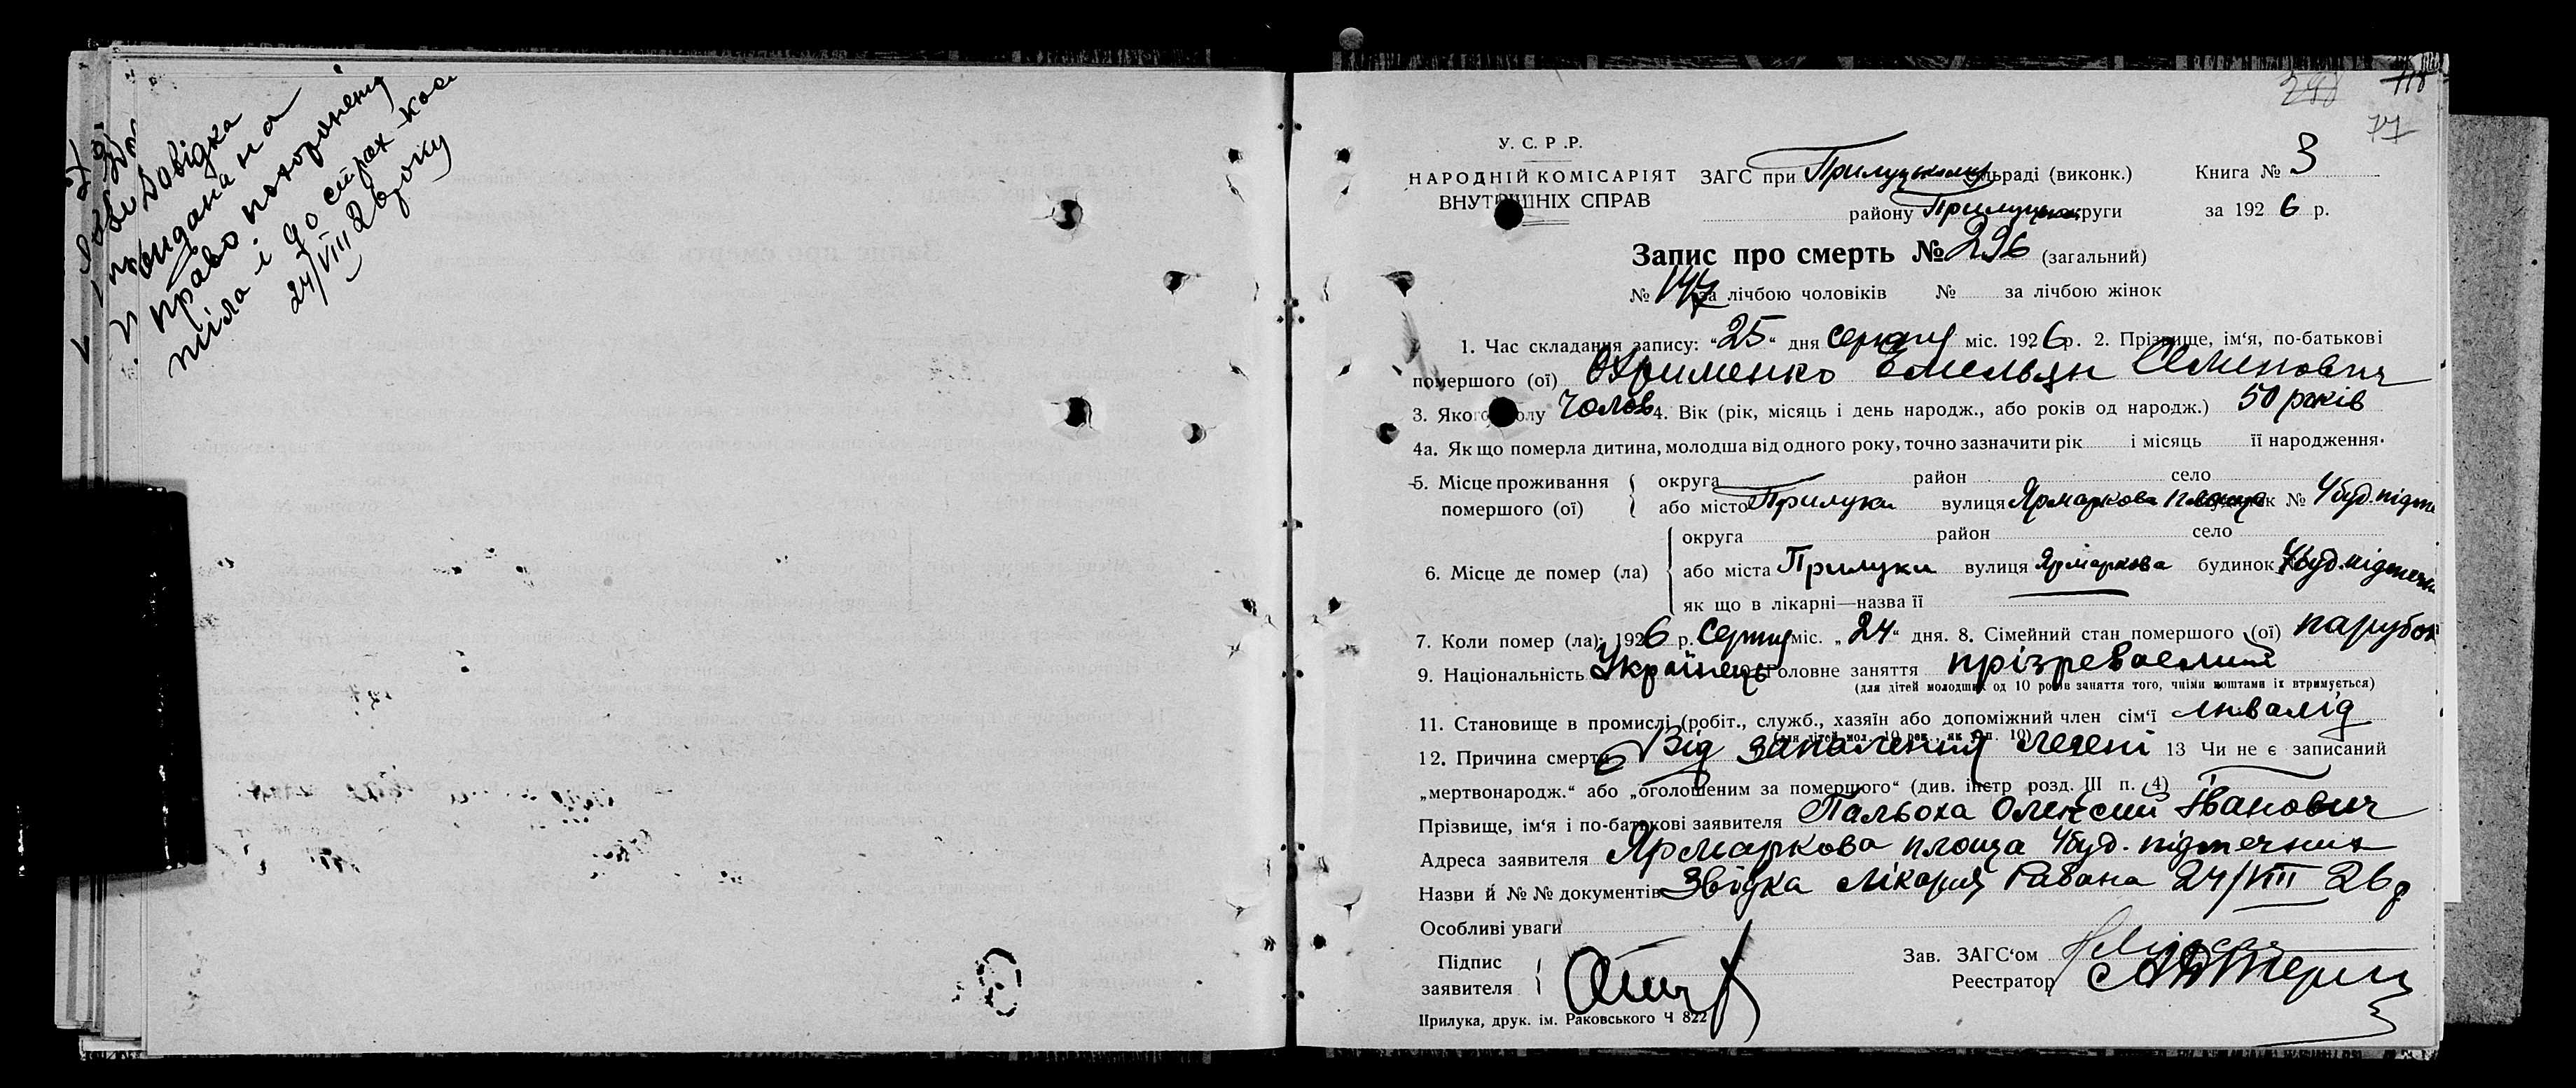 Довідка
видана на
право похоронены
тіла і до страх-кас
24/VIII 26 року
298 118
77
У. С. Р. Р.
НАРОДНІЙ КОМІСАРІЯТ
ВНУТРІШНІХ СПРАВ
ЗАГС при Прилуцькому сільраді (виконк.) Книга № 3
району Прилуцької округи за 1926 р.
Запис про смерть № 296 (загальний)
№ 147 за лічбою чоловіків № за лічбою жінок
1. Час складання запису: "25" дня серпня міс. 1926 р. 2. Прізвище, ім'я, по-батькові
помершого (ої) Охрименко Емельян Семенович
3. Якого полу Чолов 4. Вік (рік, місяць і день народж., або років од народж.) 50 років
4а. Як що померла дитина, молодша від одного року, точно зазначити рік і місяць її народження.
5. Місце проживання округа район село
помершого (ої) або місто Прилуки вулиця Ярмаркова площа будинок № 4 буд. підте
округа район село
6. Місце де помер (ла) або міста Прилуки вулиця Ярмаркова будинок 4 буд. підтечн
як що в лікарні—назва її
7. Коли помер (ла): 1926 р. Серпня міс. „24" дня. 8. Сімейний стан помершого (ої) парубок
9. Національність Українець 10. Головне заняття прізреваемий
(для дітей молодших од 10 років заняття того, чиїми коштами їх втримується)
11. Становище в промислі (робіт., служб., хазяїн або допоміжний член сім'ї інвалід
(для дітей мол. 10 рок., як в п. 10)
12. Причина смерти Від запалення легені 13 Чи не є записаний
„мертвонародж." або „оголошеним за помершого" (див. інстр розд. III п. 4)
Прізвище, ім'я і по-батькові заявителя Пальоха Олексій Іванович
Адреса заявителя Ярмаркова площа 4 буд. підтечних
Назви й №№ документів Звідка лікаря Равана 24/VIII 26 р
Особливі уваги
Підпис
заявителя
Зав. ЗАГС'ом
Реестратор
Прилука, друк. ім. Раковського Ч 822